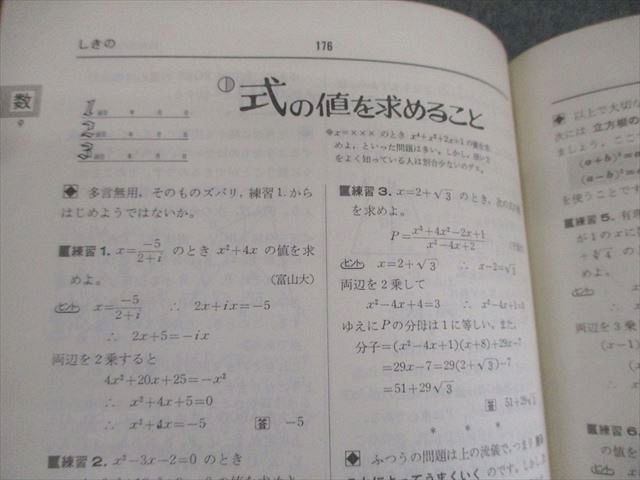 しきの
176
数
① 式の値を求めること
◆x=×××のとき x⁴+x³+2x+1の値を求
めよ,といった問題は多い.しかし,扱い方
をよく知っている人は割合少ないのデス.
◆ 多言無用,そのものズバリ,練習1.から
はじめようではないか.
練習1. x=-5/(2+i) のとき x²+4x の値を求
めよ. (富山大)
ヒント x=-5/(2+i) ∴ 2x+ix=-5
∴ 2x+5=-ix
両辺を2乗すると
4x²+20x+25=-x²
∴ x²+4x+5=0
∴ x²+4x=-5 答 -5
練習2. x²-3x-2=0 のとき
練習3. x=2+√3 のとき,
を求めよ.
P=(x³+4x²-2x+1)/(x²-4x+2)
ヒント x=2+√3 ∴ x-2=√3
両辺を2乗して
x²-4x+4=3 ∴ x²-4x+1=0
ゆえにPの分母は1に等しい.また,
分子=(x²-4x+1)(x+8)+29x-7
=29x-7=29(2+√3)-7
=51+29√3
答 51+29√3
* * *
◆ ふつうの問題は上の流儀で,つまり
のです.しかし
◆ 以上で大切な
次には 立方根の
ましょう.ここ
(a+b)³=
(a-b)³=
を使うことです
練習5. 有理
が1のxに
めよ.
ヒント
両辺を3乗
(x-1)
∴
練習6.
の値を